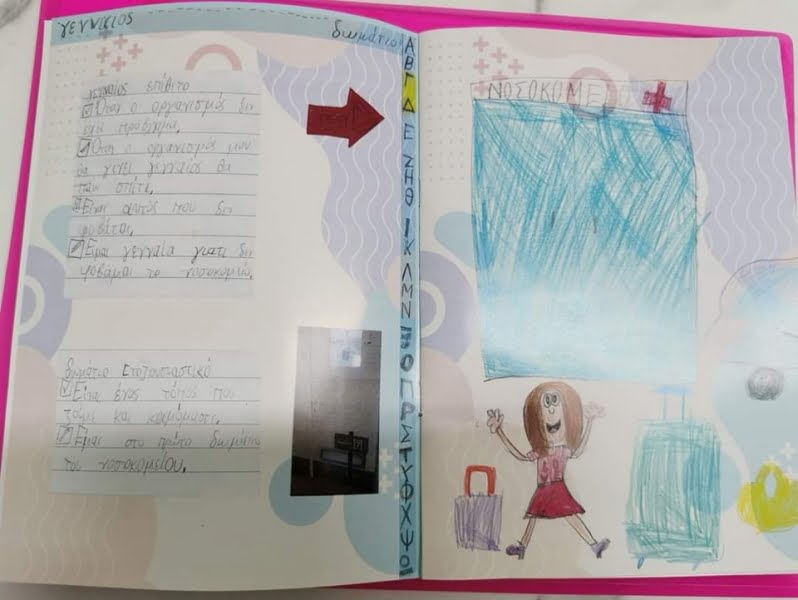 γενναιος
δωμάτιο
γενναίος επίθετο
Όταν ο οργανισμός δεν
έχει πρόβλημα.
Όταν ο οργανισμός μου
θα γίνει γενναίος θα
πάω σπίτι.
Είναι αυτός που δεν
φοβάται.
Είμαι γενναία γιατί δεν
φοβάμαι το νοσοκομείο.
δωμάτιο
Είναι ένας τόπος που
τρώμε και κοιμόμαστε.
Είμαι στο πρώτο δωμάτιο
του νοσοκομείου.
Α
Β
Γ
Δ
Ε
Ζ
Η
Θ
Ι
Κ
Λ
Μ
Ν
Ξ
Ο
Π
Ρ
Σ
Τ
Υ
Φ
Χ
Ψ
Ω
ΝΟΣΟΚΟΜΕΙΟ